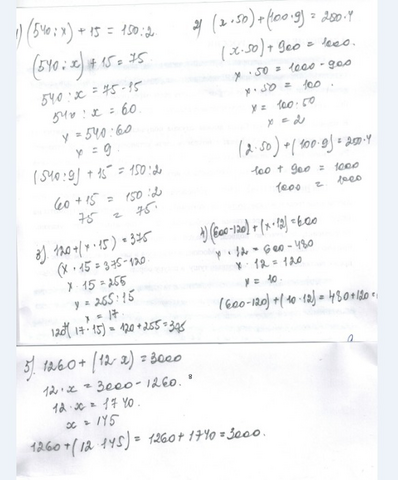 1) (540:x) + 15 = 150:2
(540:x) + 15 = 75
540:x = 75-15
540:x = 60
x = 540:60
x = 9.
(540:9) + 15 = 150:2
60 + 15 = 150:2
75 = 75.
2) (x·50) + (100·9) = 250·4
(x·50) + 900 = 1000.
x·50 = 1000-900
x·50 = 100.
x = 100:50
x = 2
(2·50) + (100·9) = 250·4
100 + 900 = 1000
1000 = 1000
3) 120+(x·15) = 375
(x·15 = 375-120
x·15 = 255
x = 255:15
x = 17
120+(17·15) = 120+255 = 375
4) (600-120)+(x·12) = 600
x·12 = 600-480
x·12 = 120
x = 10.
(600-120)+(10·12) = 480+120=
5) 1260 + (12·x) = 3000
12·x = 3000-1260.
12·x = 1740.
x = 145
1260+(12·145) = 1260+1740=3000.